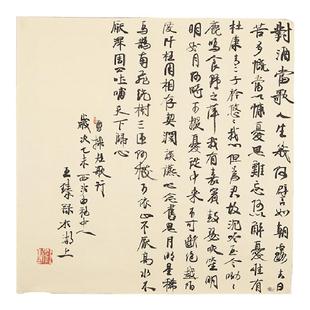 對酒當歌人生幾何譬如朝露去日
苦多慨當以慷憂思難忘何以解憂惟有
杜康青青子衿悠悠我心但為君故沉吟至今呦呦
鹿鳴食野之萍我有嘉賓鼓瑟吹笙明
明如月何時可掇憂從中來不可斷絕越陌
度阡枉用相存契闊談讌心念舊恩月明星稀
烏鵲南飛繞樹三匝何枝可依山不厭高水不
厭深周公吐哺天下歸心
曹操短歌行
歲次乙未西泠
王臻 於湖上